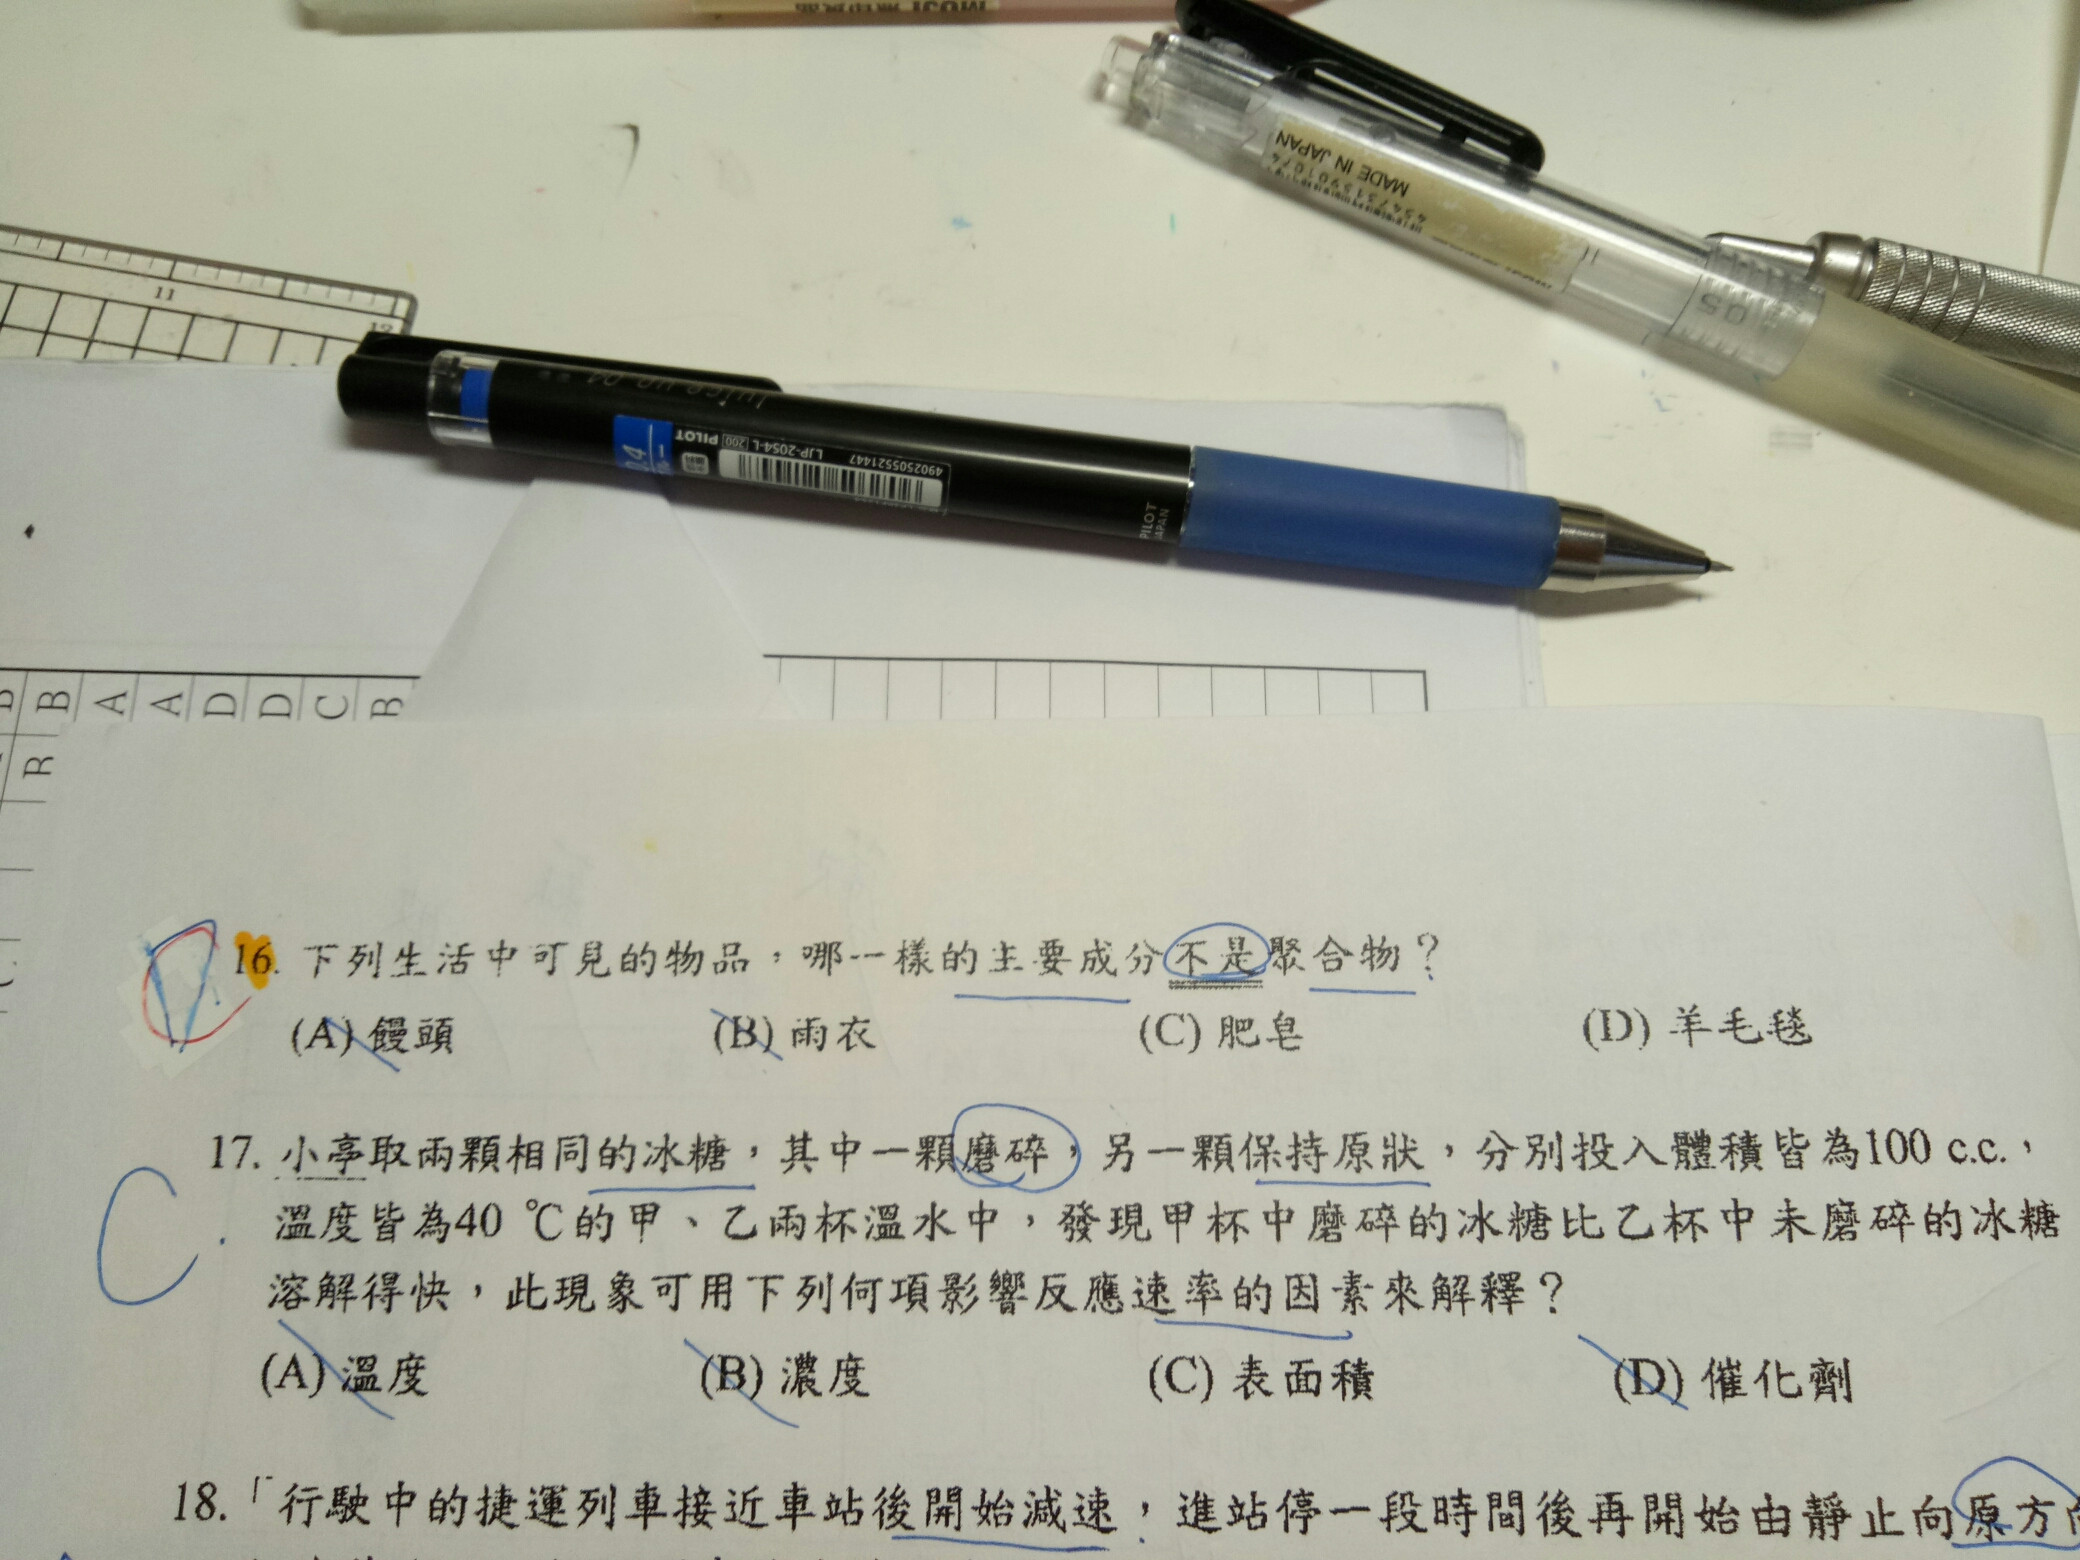 MUJI 無印良品
MADE IN JAPAN
4547315901074
0.5
11
12
Juice up 04
0.4
PILOT 200 LJP-20S4-L
4902505521447
PILOT
JAPAN
B B A A D D C B
B
16. 下列生活中可見的物品，哪一樣的主要成分不是聚合物？
(A) 饅頭 (B) 雨衣 (C) 肥皂 (D) 羊毛毯
C.
17. 小亭取兩顆相同的冰糖，其中一顆磨碎，另一顆保持原狀，分別投入體積皆為100 c.c.，
溫度皆為40 ℃的甲、乙兩杯溫水中，發現甲杯中磨碎的冰糖比乙杯中未磨碎的冰糖
溶解得快，此現象可用下列何項影響反應速率的因素來解釋？
(A) 溫度 (B) 濃度 (C) 表面積 (D) 催化劑
18.「行駛中的捷運列車接近車站後開始減速，進站停一段時間後再開始由靜止向原方向